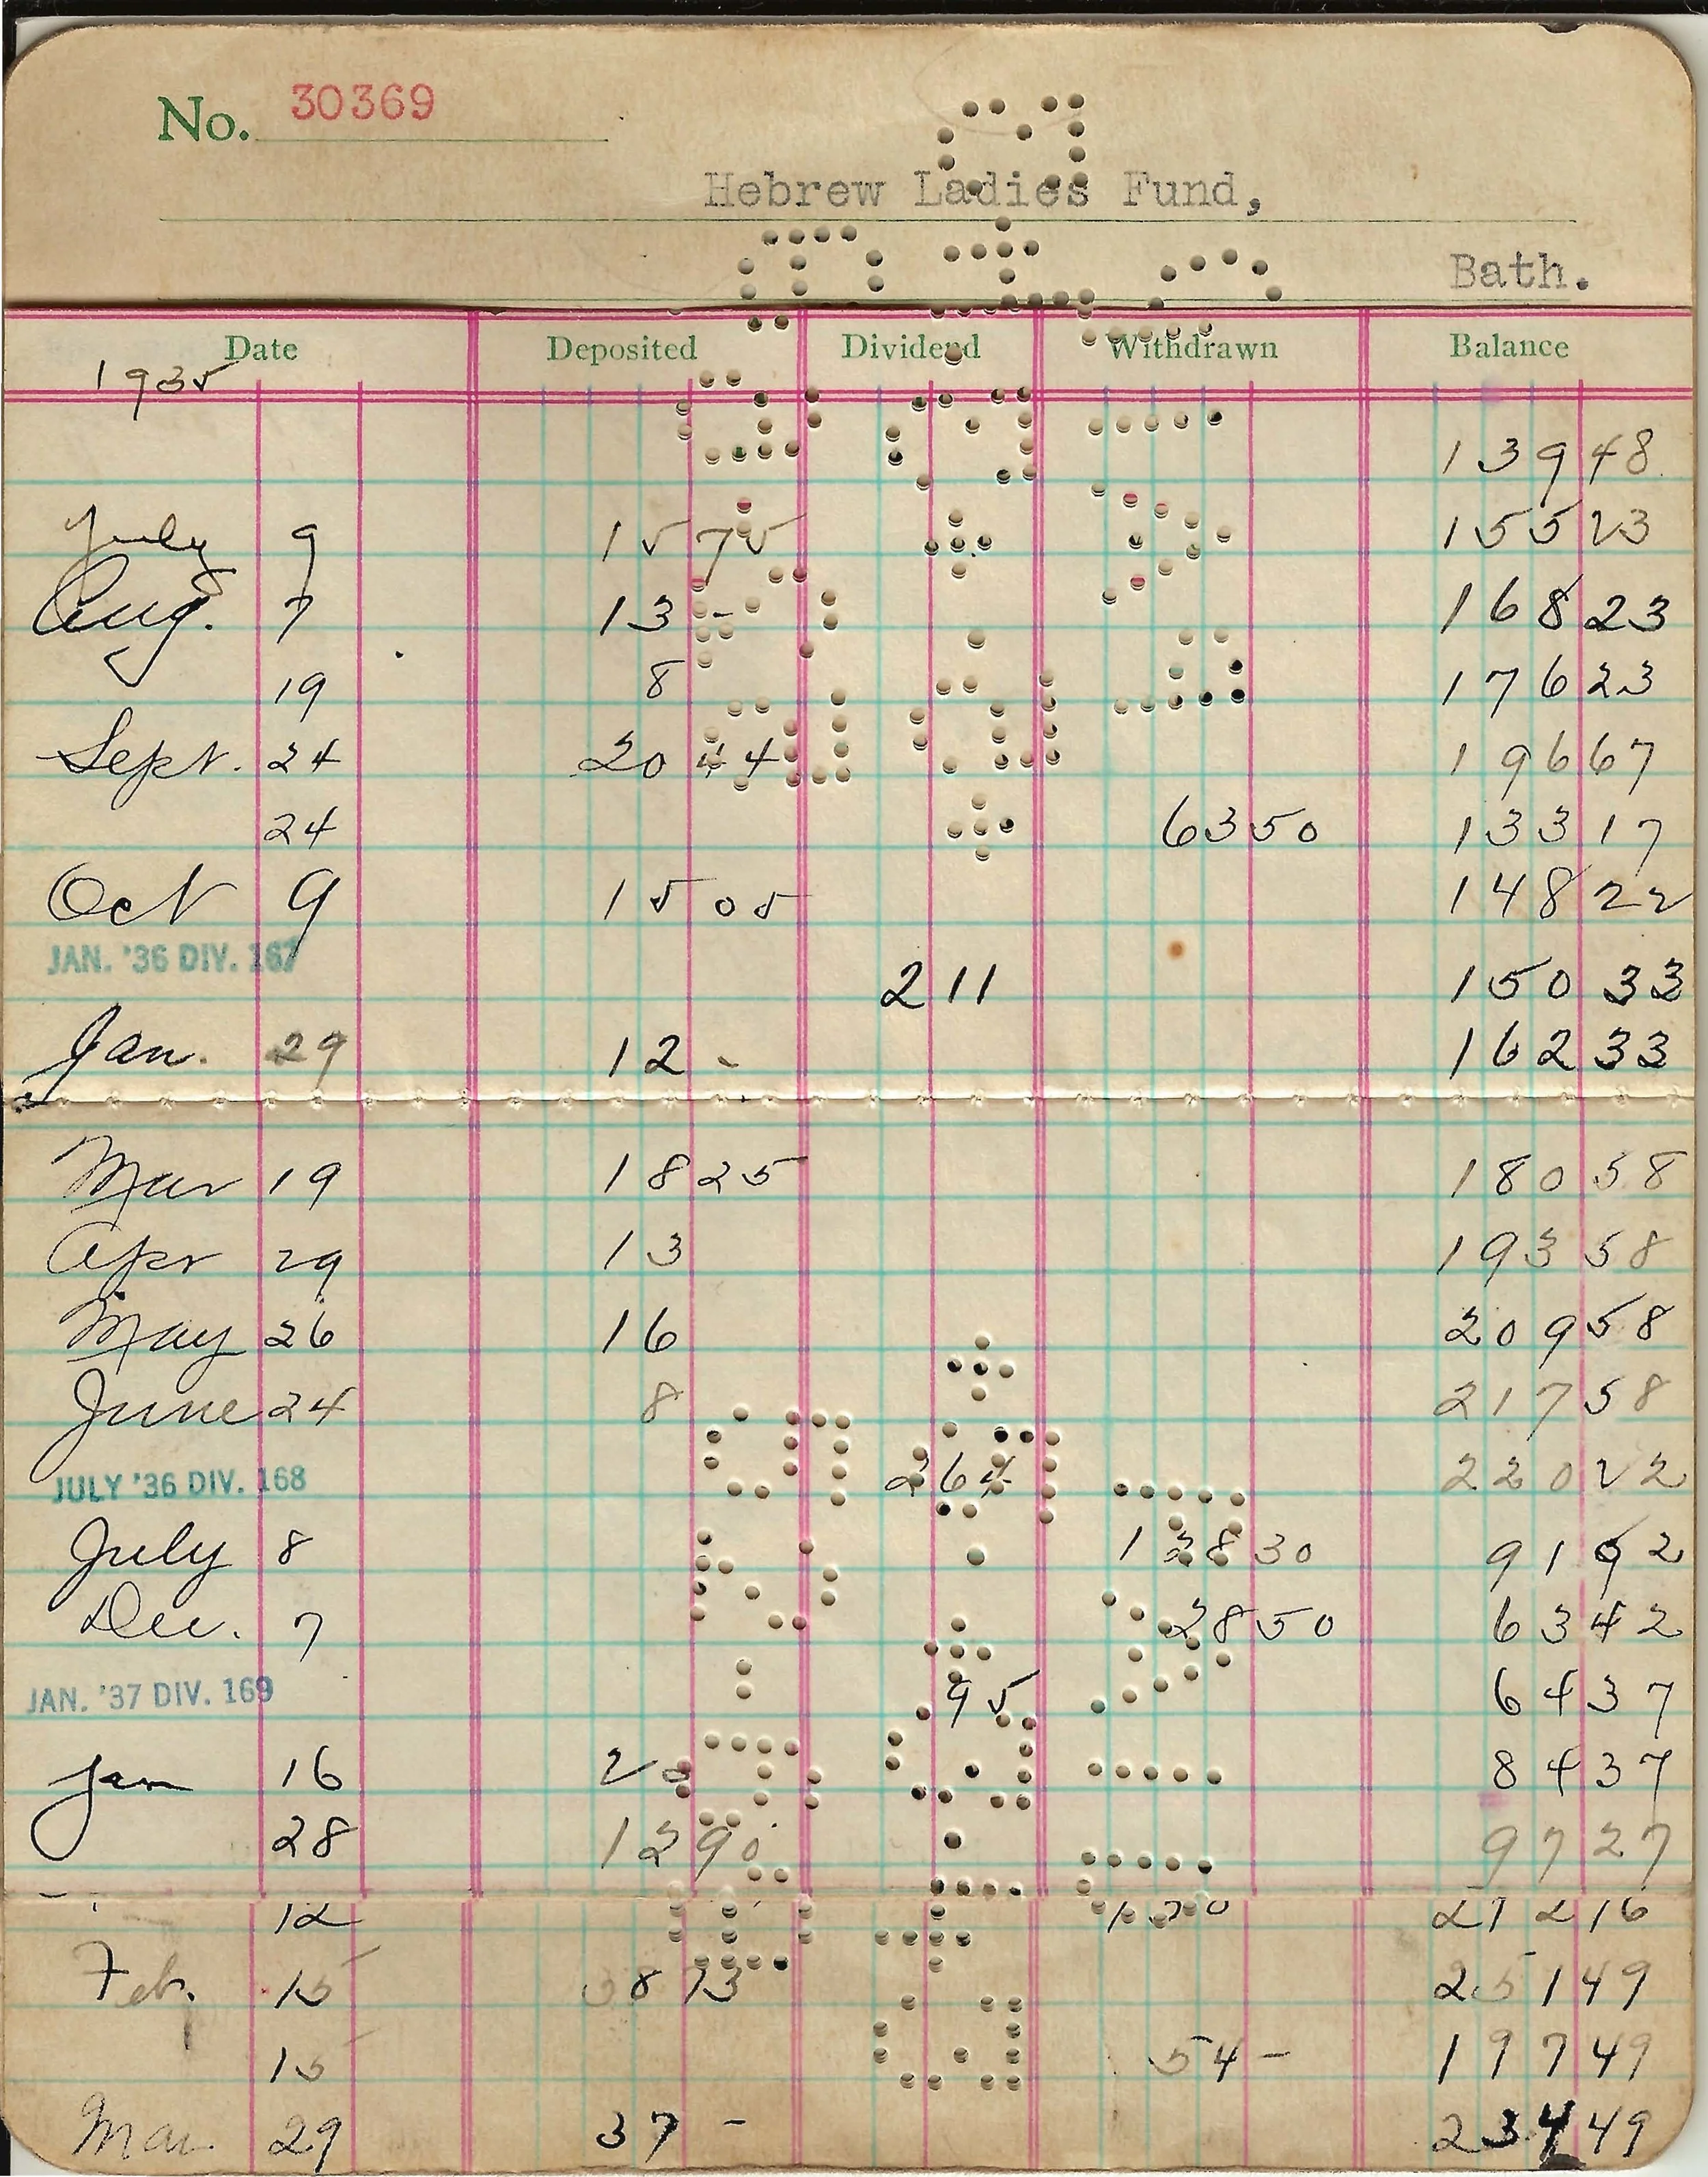 No. 30369
Hebrew Ladies Fund,
Bath.
Date Deposited Dividend Withdrawn Balance
1935
139 48
July 9 15 75 155 23
Aug. 7 13 - 168 23
19 8 176 23
Sept. 24 20 44 196 67
24 63 50 133 17
Oct 9 15 05 148 22
JAN. '36 DIV. 167 2 11 150 33
Jan. 29 12 - 162 33
Mar 19 18 25 180 58
Apr 29 13 193 58
May 26 16 209 58
June 24 8 217 58
JULY '36 DIV. 168 2 64 220 22
July 8 128 30 91 92
Dec. 7 28 50 63 42
JAN. '37 DIV. 169 95 64 37
Jan 16 20 84 37
28 12 90 97 27
12 212 16
Feb. 15 38 73 251 49
15 54 - 197 49
Mar. 29 37 - 234 49